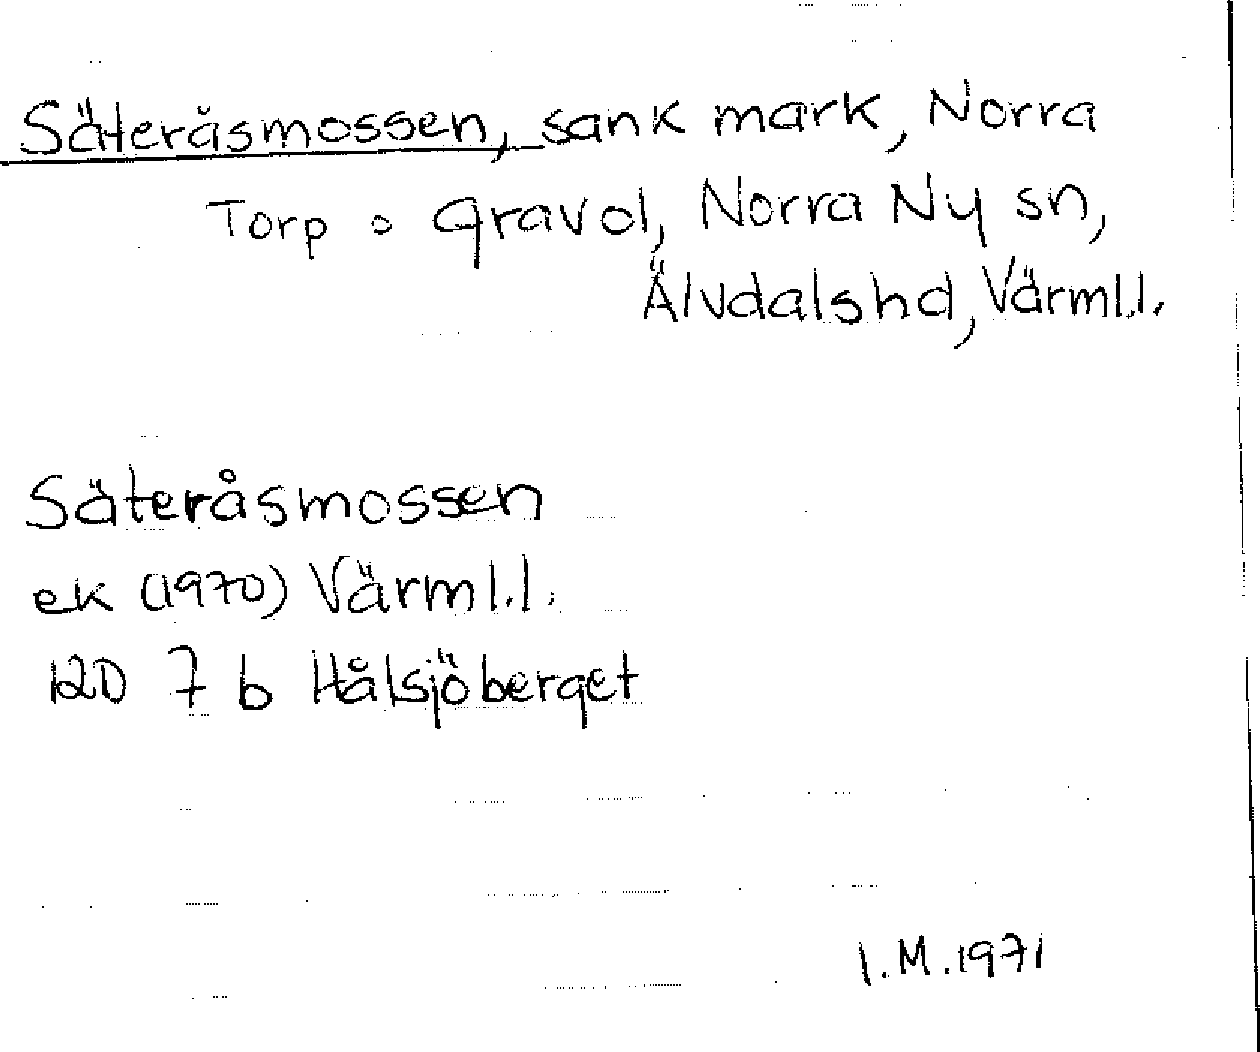 Säteråsmossen, sank mark, Norra
Torp o Gravol, Norra Ny sn,
Älvdalshd, Värml.l.
Säteråsmossen
ek (1970) Värml.l.
12D 7 b Hålsjöberget
I.M.1971